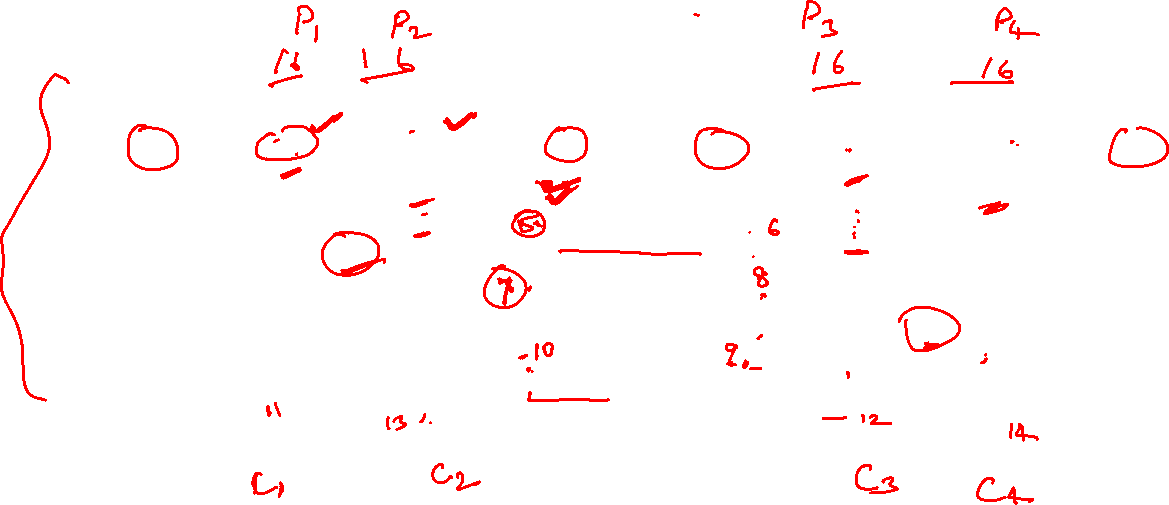 P1 P2 P3 P4
16 16 16 16
5 6
7 8
10 9
11 13 12 14
C1 C2 C3 C4